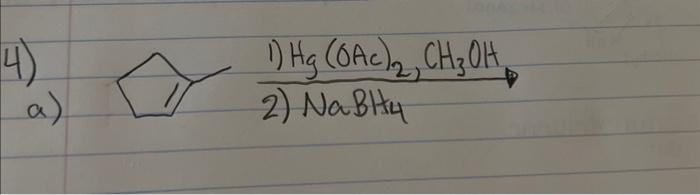 4)
a)
1) Hg(OAc)₂, CH₃OH
2) NaBH₄